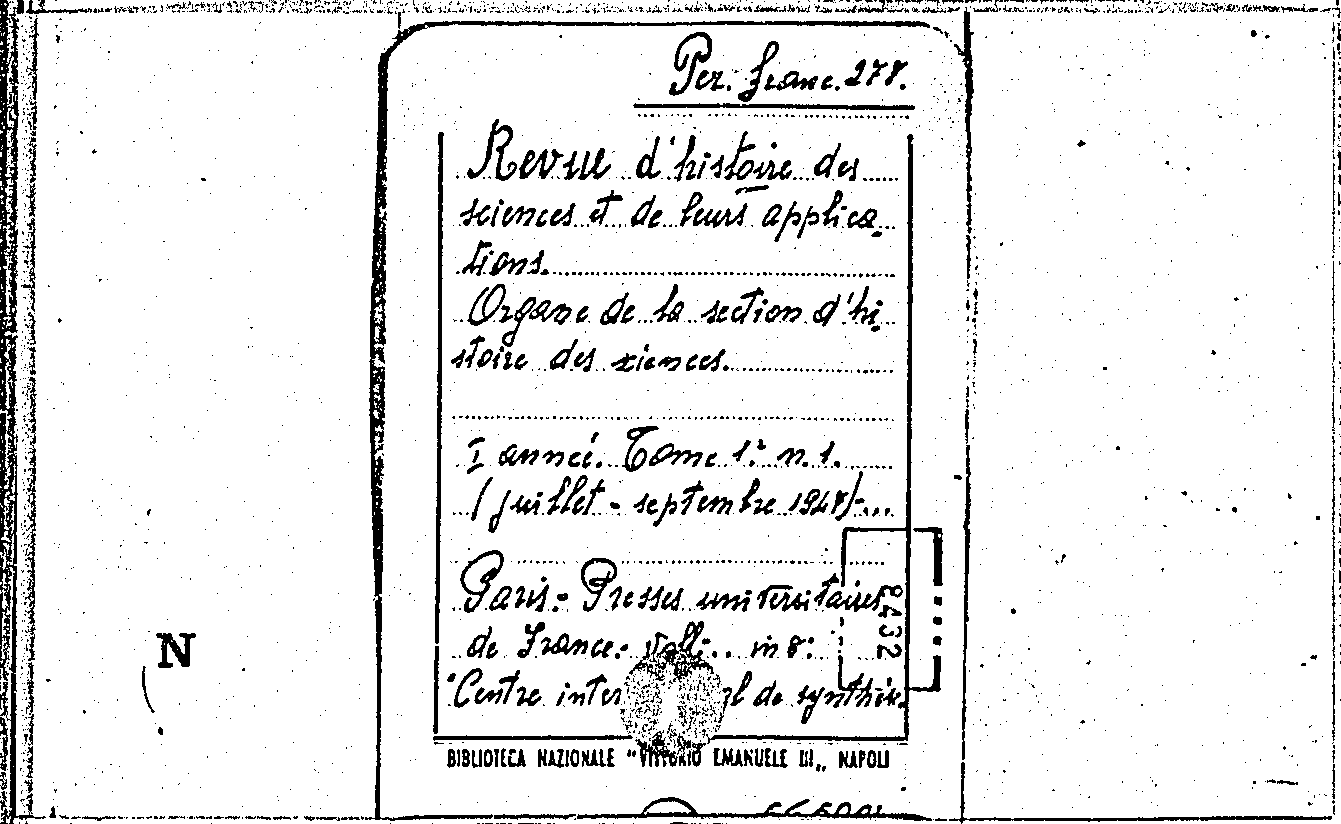 Per. Franc. 278.
Revue d'histoire des
sciences et de leurs applica-
tions.
Organe de la section d'hi-
stoire des sciences.
I année. Tome 1.º n. 1.
(juillet - septembre 1947)-...
Paris.- Presses universitaires
de France.- Voll... in 8º
"Centre de synthèse.
8432
BIBLIOTECA NAZIONALE "VITTORIO EMANUELE III„ NAPOLI
N